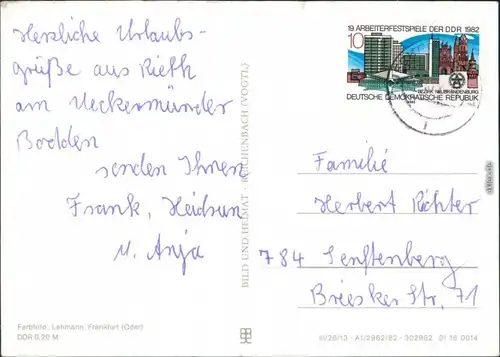 Herzliche Urlaubs-
grüße aus Rieth
am Ueckermünder
Bodden
senden Ihnen
Frank, Heidrun
u. Anja
Farbfoto: Lehmann, Frankfurt (Oder)
DDR 0,20 M
BILD UND HEIMAT · REICHENBACH (VOGTL)
19. ARBEITERFESTSPIELE DER DDR 1982
10
BEZIRK NEUBRANDENBURG
DEUTSCHE DEMOKRATISCHE REPUBLIK
Familie
Herbert Richter
784 Senftenberg
Briesker Str. 71
III/26/13 · A1/2962/82 · 302962 01 16 0014